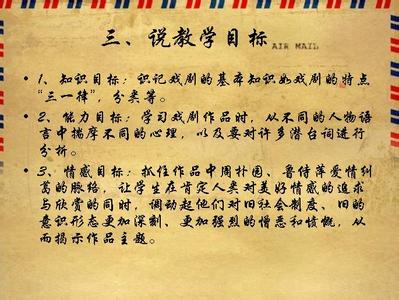 三、说教学目标
AIR MAIL
• 1、知识目标：识记戏剧的基本知识如戏剧的特点
“三一律”，分类等。
• 2、能力目标：学习戏剧作品时，从不同的人物语
言中揣摩不同的心理，以及要对许多潜台词进行
分析。
• 3、情感目标：抓住作品中周朴园、鲁侍萍爱情纠
葛的脉络，让学生在肯定人类对美好情感的追求
与欣赏的同时，调动起他们对旧社会制度、旧的
意识形态更加深刻、更加强烈的憎恶和愤慨，从
而揭示作品主题。